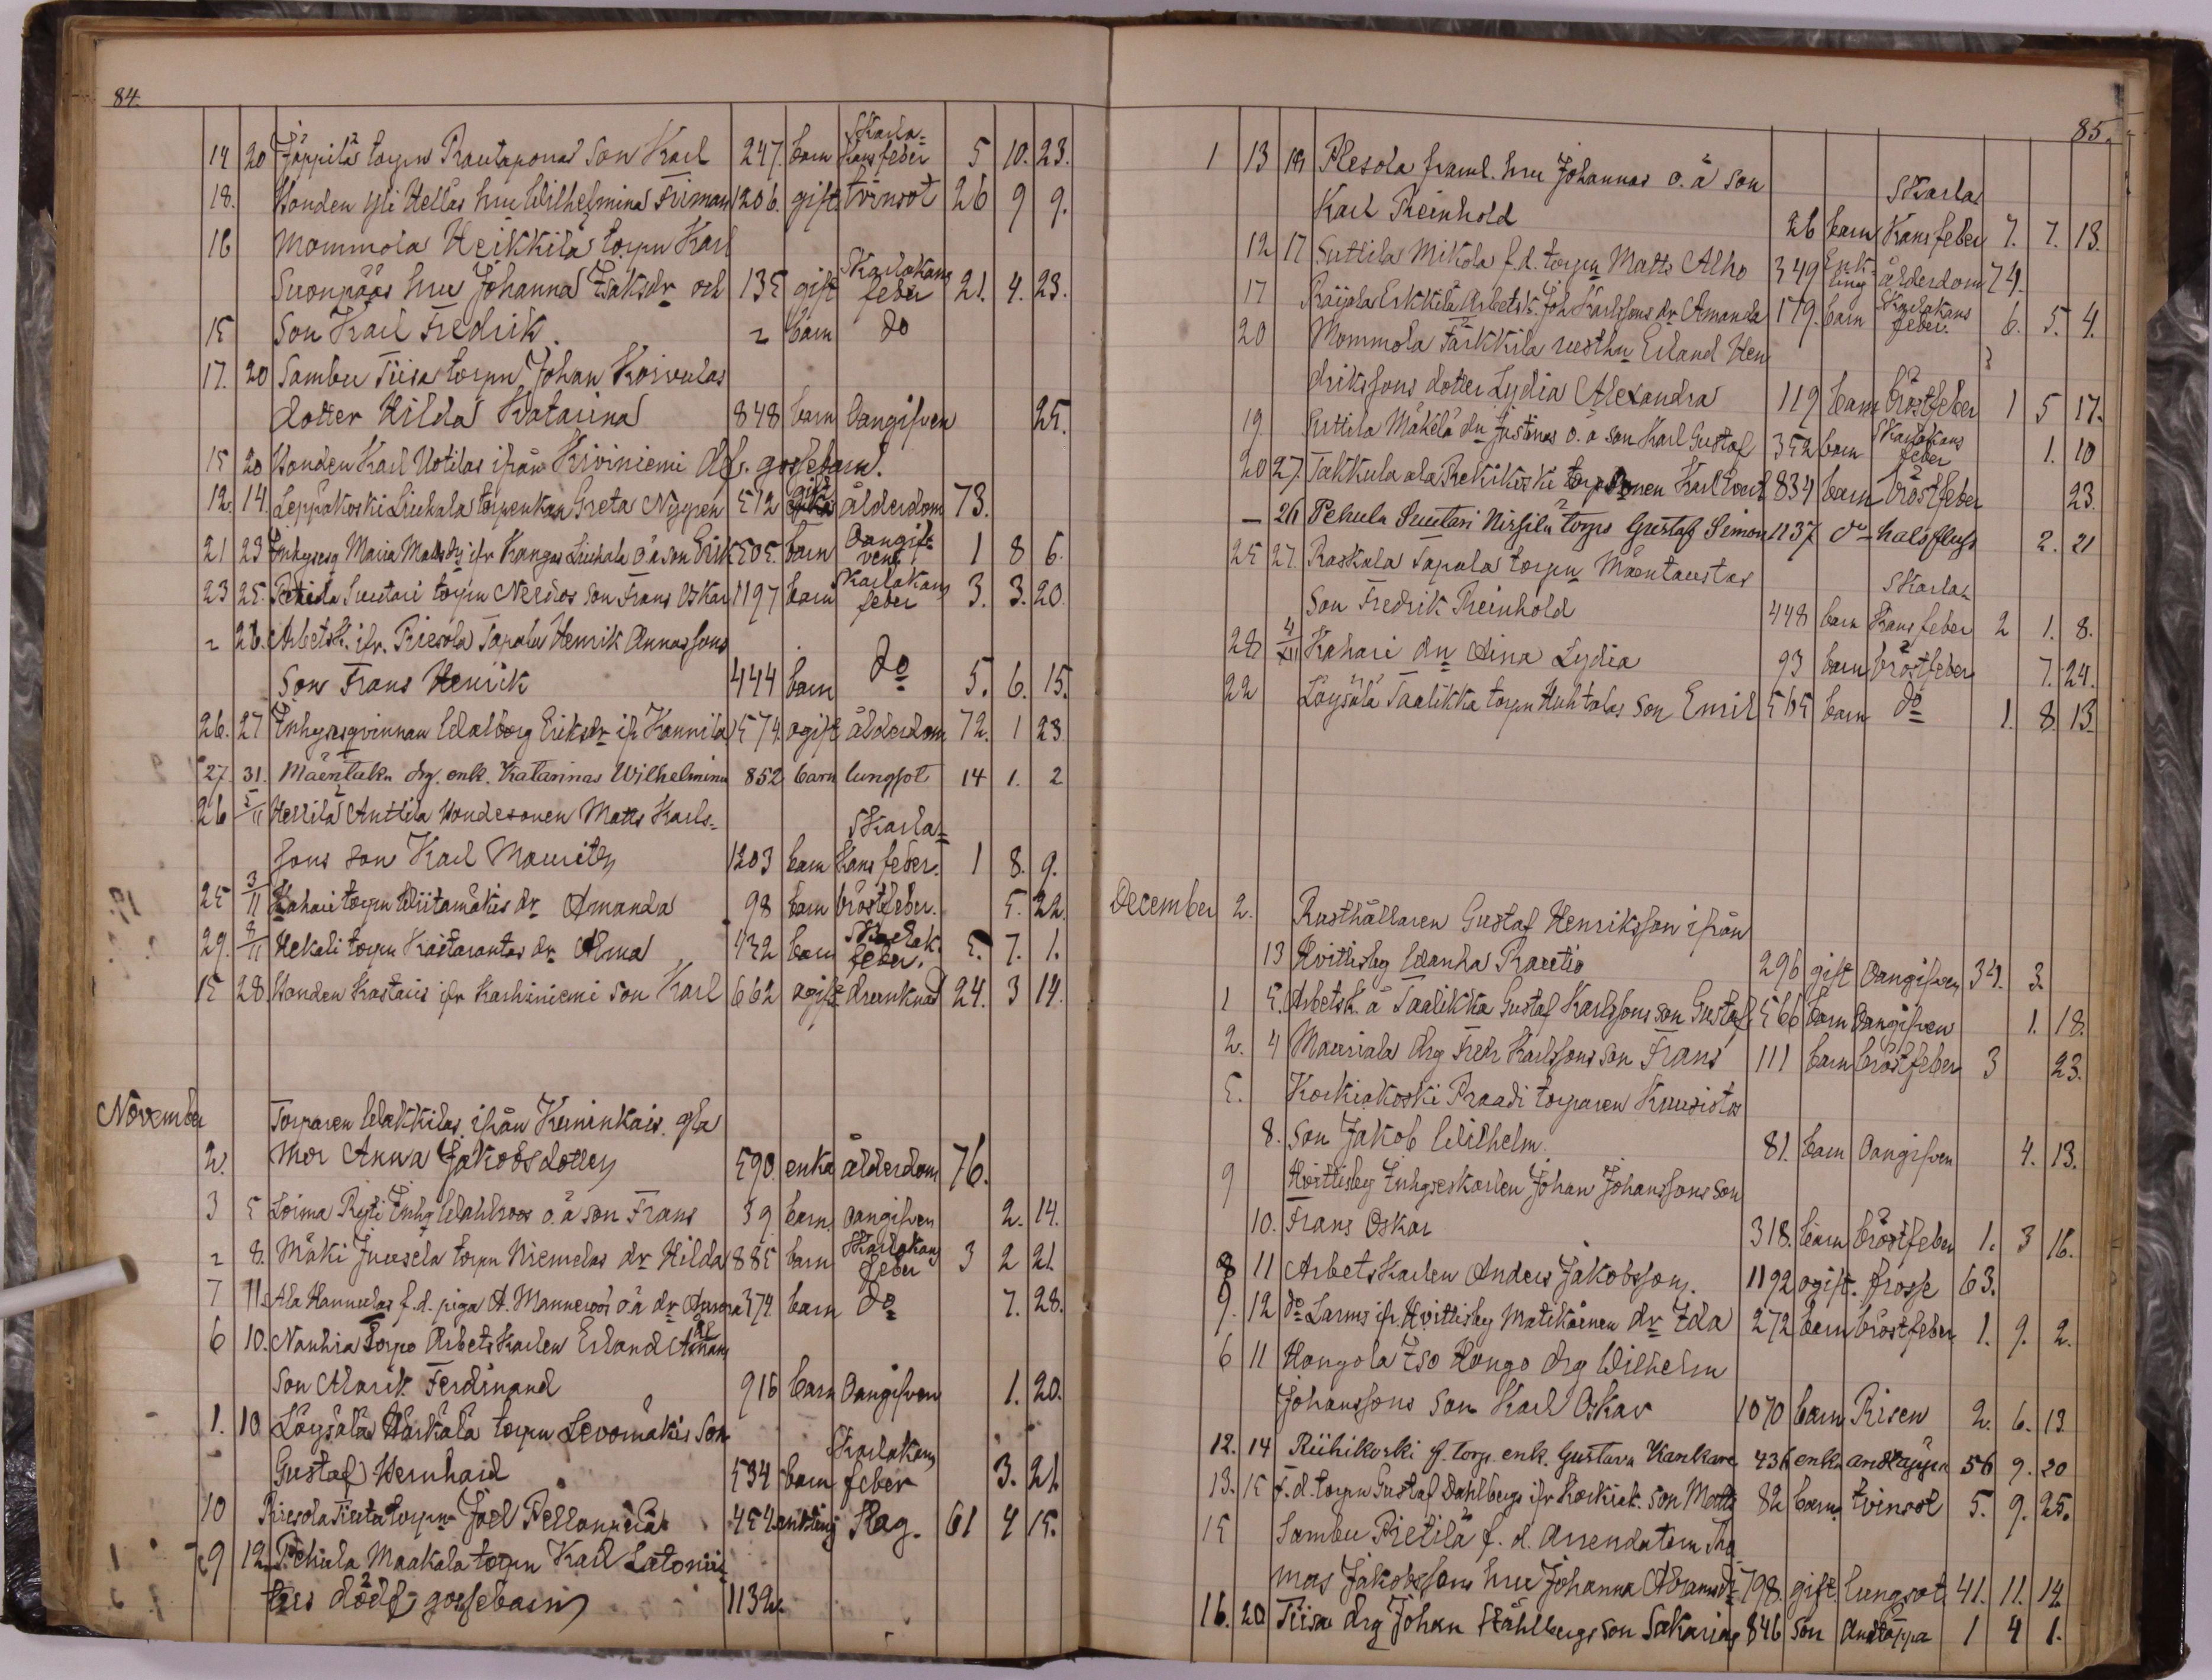 84.
14 20 Jäppilä torpn Rautaporras Son Karl 247. barn Skarla-
kans feber 5 10. 23.
18. Honden yli Hellas hru Wilhelmina Firman 1206. gift tvinsot 26 9 9.
16 Mommola Heikkilä torpn Karl
Suonpääs hru Johanna Isaksdr och 135 gift Skarlakans feber 21. 4. 23.
15 Son Karl Fredrik. " barn do
17. 20 Sambu Tiisa torpn Johan Koivulas
dotter Hilda Katarina 848 barn Oangifven 25.
15 20 Honden Karl Uotilas ifrån Kiviniemi döf. gossebarn.
12. 14. Leppäkoski Liukala torpenkan Greta Nygren 512 ålderdom 73.
21 23 Inhysesq Maria Mattsdr ifr Kangas Liuhala o.ä son Erik 505. barn Oangif-
vent 1 8 6.
23 25. Pehula Suutari torpn Nerdos Son Frans Oskar 1197 barn Skarlakans
feber 3. 3. 20
" 26. Arbetsk. ifr. Riesola Tapola Henrik Annassons
Son Frans Henrik 444 barn do 5. 6. 15.
26. 27 Inhysesqvinnan Walborg Eriksdr if Kannila 1574 ogift ålderdom 72. 1 23
27 31. Mäentaka drg. enk. Katarinas Wilhelmina 852 barn lungsot 14 1. 2
26 5/11 Hellilä Anttila Hondesonen Matts Karls-
sons son Karl Mauritz 1203 barn Skarla-
kans feber. 1 8. 9.
25 3/11 Kahari torpn Wiitamäkis dr Amanda 98 barn bröstfeber. 5. 22.
29. 8/11 Hekali torpn Kaitarantas dr Alma 432 barn Skarlak.
feber. 5. 7. 1.
15 28. Honden Kastaris ifr Karhiniemi Son Karl 662 ogift drunknad 24. 3 14.
November Torparen Wakkilas ifrån Keninkais gla
2. Mor Anna Jakobsdotter 590. enka ålderdom 76.
3 5 Loima Ryti Inhq Wahlroos o.ä son Frans 39 barn. Oangifven 2. 14.
" 8. Mäki Juusela torpn Niemelas dr Hilda 885 barn Skarlakans
feber 3 2 21
7 11. Ala Hannulas f.d. piga A. Mannerors o.ä dr Aurora 374 barn do 7. 28.
6 10. Nanhia torpo Arbetskarlen Erland
Son Alarik Ferdinand 916 barn Oangifven 1. 20.
1. 10 Löysälä Härkälä torpn Levomäkis Son
Gustaf Hernhard 534 barn Skarlakans
feber 3. 21.
10 Riesola Tuuta torpn Joel Pellonpää 454 enkling Slag. 61 4 15.
9 12 Pehula Maakala torpn Karl Latonii-
tus dödf. gossebarn 1132.
85.
1 13 18 Plesola framl. hru Johannas o.ä son
Karl Reinhold 26 barn Skarla
kans feber 7. 7. 13.
12 17 Suttila Mikola f.d. torpn Matts Alho 349 Enk-
ling ålderdom 74.
17 Raijala Erkkilä Arbetsk. Joh Karlssons dr Amanda 179. barn Skarlakans
feber. 6. 5. 4.
20 Mommola Tärkkilä rusthn Erland Hen
drikssons dotter Lydia Alexandra 119 barn bröstfeber 1 5 17.
19 Suttila Mäkelä dn Justinas o.ä son Karl Gustaf 352 barn Skarlakans
feber 1. 10
20 27. Takkula ala Rekikoski torpsonen Karl Evert 834 barn bröstfeber 23.
— 26 Pehula Suutari Nissilä torps Gustaf Simon 1137 do halsfluss 2. 21
25 27. Raskala Tapala torpn Mäentaustas
Son Fredrik Reinhold 448 barn Skarla-
kans feber 2 1. 8.
28 4/XII Kahari dn Aina Lydia 93 barn bröstfeber 7. 24.
22 Löysälä Taalikka torpn Huhtalas Son Emil 565 barn do 1. 8. 13.
December 2. Rusthållaren Gustaf Henriksson ifrån
13 Hvittisby Wanha Rauttio 296 gift Oangifven 34. 3.
1 5. Arbetsk. å Taalikka Gustaf Karlssons son Gustaf 566 barn Oangifven 1. 18.
2. 4 Mauriala drg Fredr Karlssons Son Frans 111 barn bröstfeber 3 23.
5. Korkiakoski Praadi torparen Kuusistos
8. Son Jakob Wilhelm. 81. barn Oangifven 4. 13.
9 Hvittisby Inhyseskarlen Johan Johanssons Son
10. Frans Oskar 318. barn bröstfeber 1. 3 16.
8 11 Arbetskarlen Anders Jakobsson. 1192 ogift. frossa 63.
9. 12 do Larms ifr. Hvittisby Matikainen dr Ida 272 barn bröstfeber 1. 9. 2.
6 11 Hongola Iso Hongo drg Wilhelm
Johanssons Son Karl Oskar 1070 barn Risen 2. 6. 13
12. 14 Riihikoski f. torp. enk. Gustava Kankare 436 enka andtäppa 56 9. 20
13. 15 f.d. torpn Gustaf Dahlbergs ifr Korkiak. Son Matts 82 barn tvinsot 5. 9. 25.
15 Sambu Pietilä f. d. Arrendatorn Tho
mas Jakobssons hru Johanna Abramsdr 798. gift lungsot 41. 11. 14.
16. 20 Tiisa drg Johan Ståhlbergs son Sakarias 846 Son Andtäppa 1 4 1.